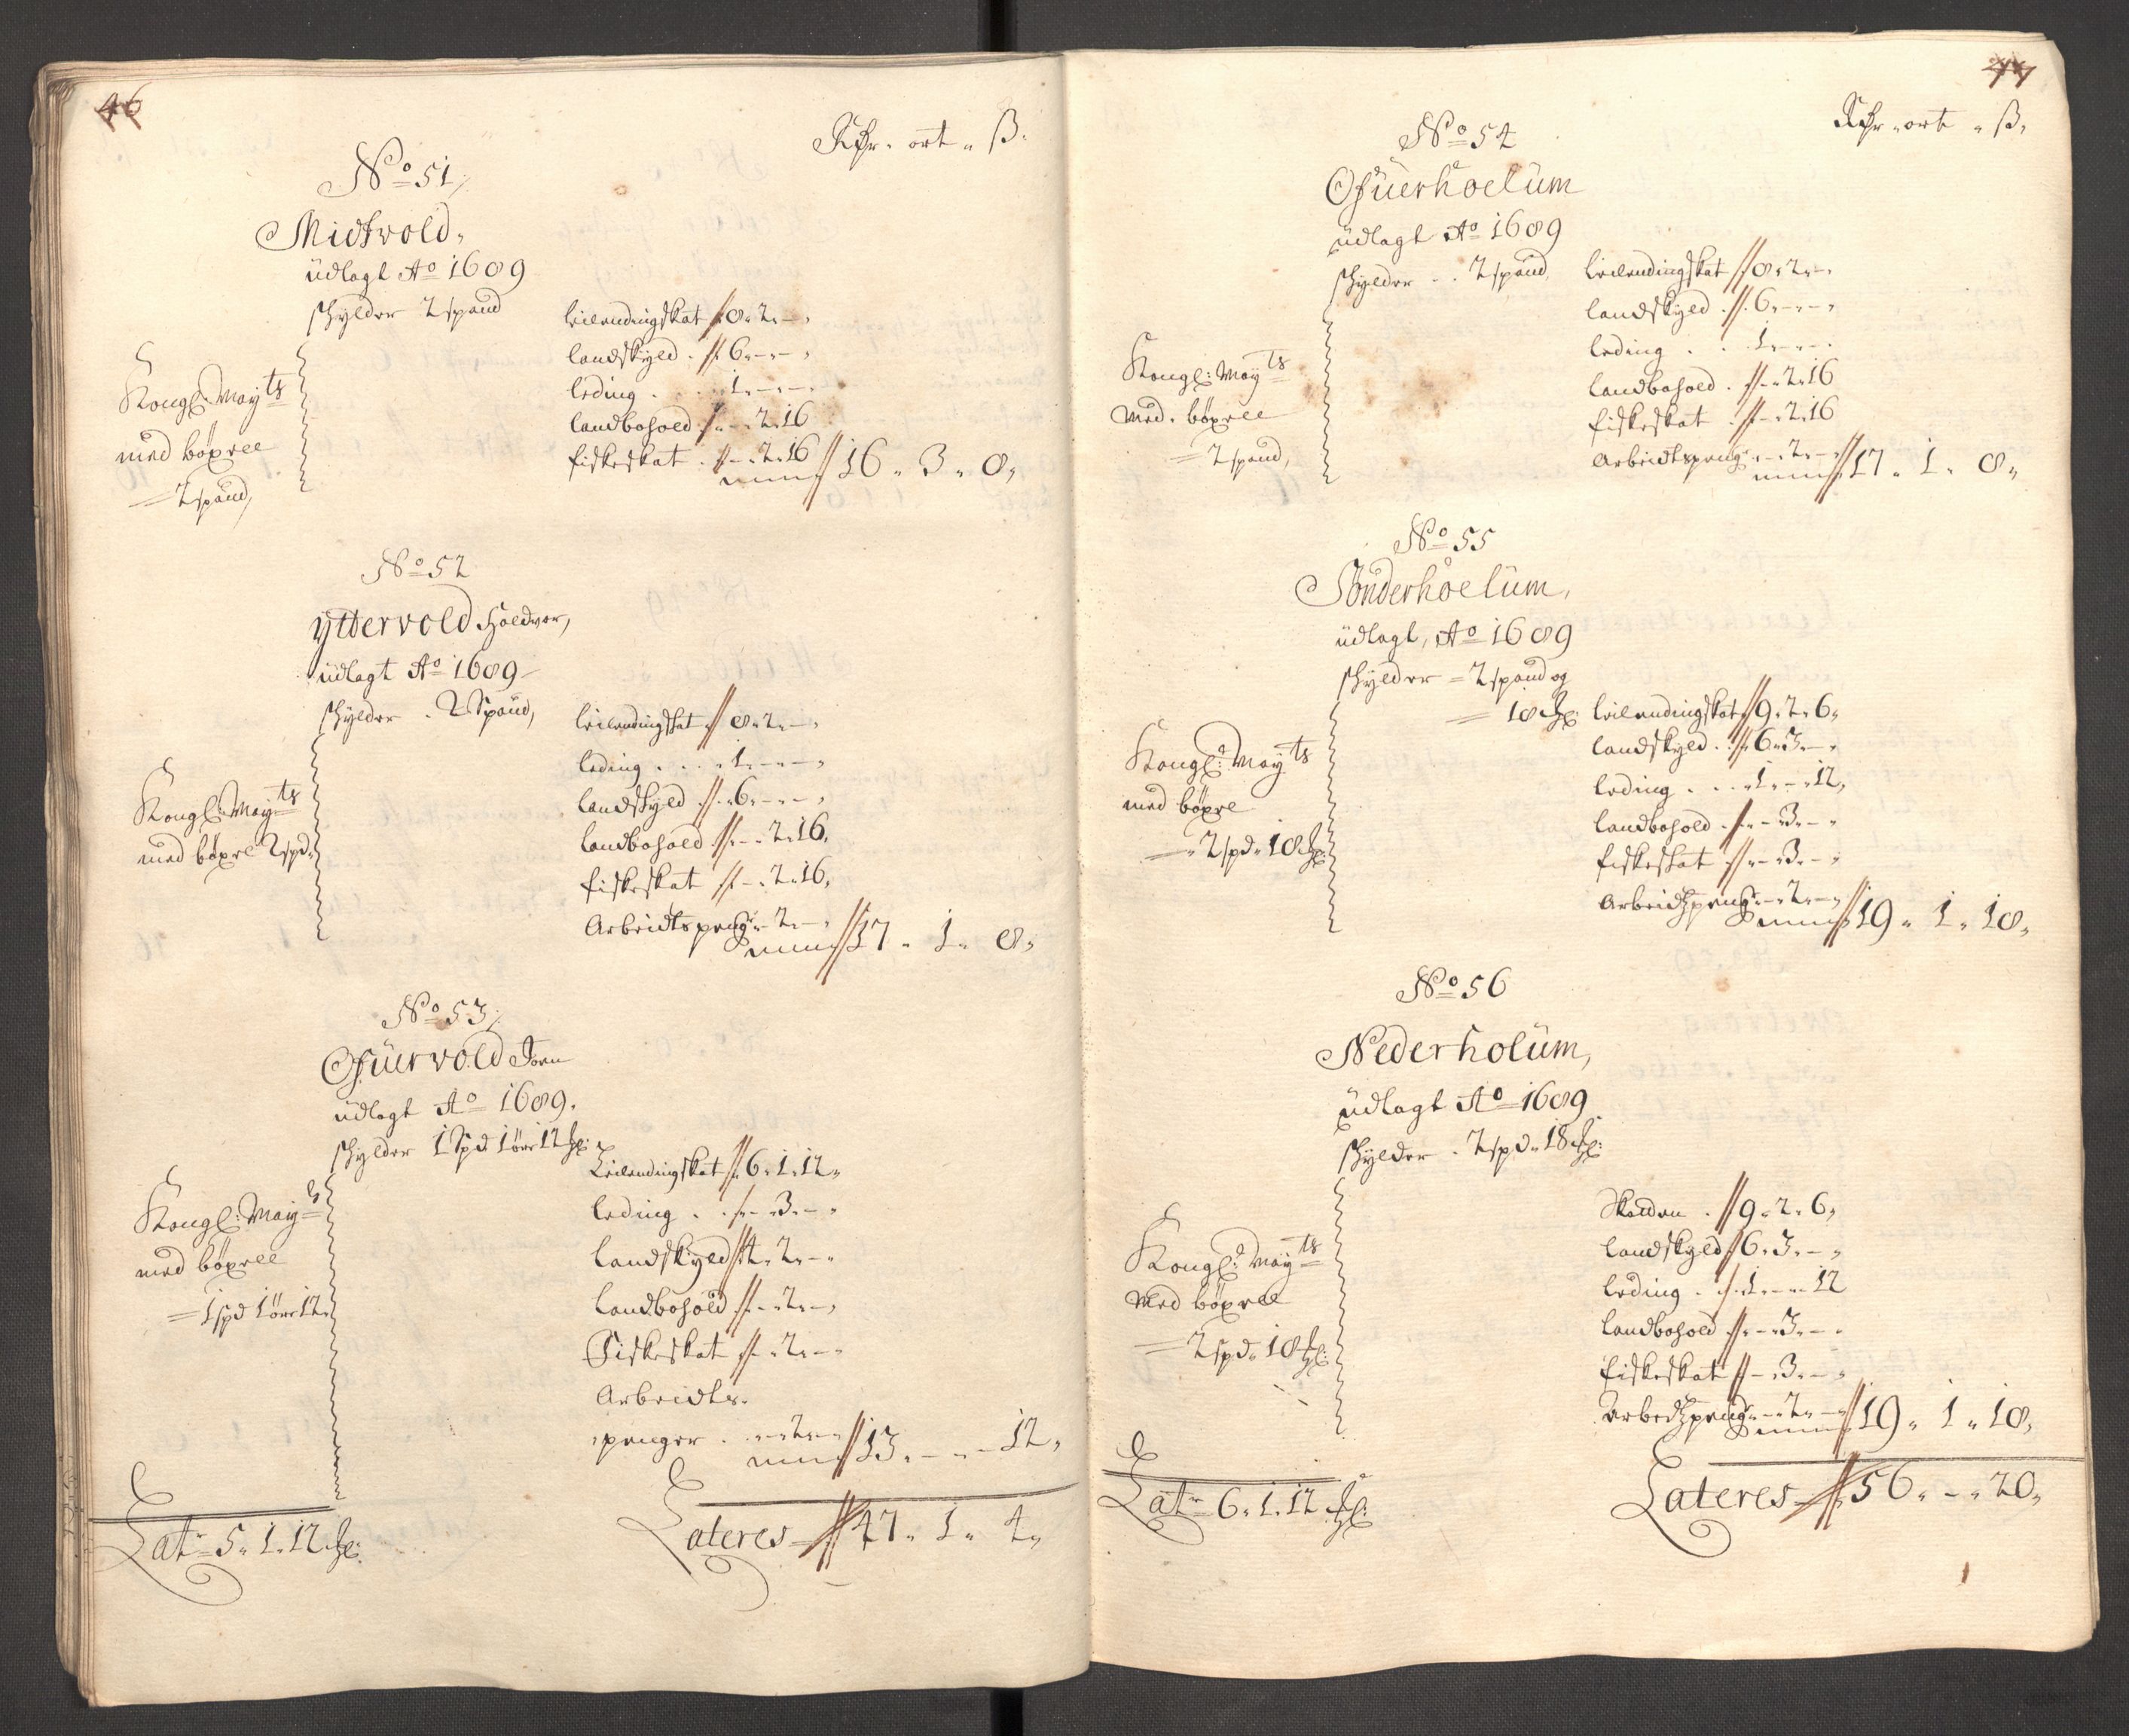 46
Rdr. ort. ß.
No 51,
Midtvold,
üdlagt Ao 1689
schylder 2 spand
Kongl: Maÿts
med böxell
= 2 spand,
leilendingskat 8. 2. –,
landskyld. 6. – . –,
leding . . . 1. – . –.
landbohold . – . 2. 16
fiskeskat . – . 2. 16
16. 3. 8,
No 52
Yttervold Halvor,
üdlagt Ao 1689
schÿlder . 2 Spand,
Kongl: Maÿts
med böxel 2 spd.
leilendingskat 8. 2. –,
leding . . . 1. – . –,
landskyld . 6. – . –,
landbohold . – . 2. 16.
fiskeskat – . 2. 16.
Arbeidtspeng. – 2. –,
17. 1. 8,
No 53,
Ofüervold Jern
üdlagt Ao 1689.
schylder 1 Spd 1 öre 12 ℔:
Kongl: Maÿts
med böxell
= 1 spd 1 öre 12.
Leilendingskat 6. 1. 12.
leding . . – . 3. – .
landskyld 4. 2. – .
landbohold – . 2. –,
Fiskeskat – . 2. – .
Arbeidts-
penger . – . 2. –
13. – . – 12,
Lat– 5. 1. 12 ℔:
Lateres 47. 1. 4,
47
Rdr. ort . ß.
No 54
Ofüerhoelüm
üdlagt Ao 1689
schylder . . 2 spand,
Kongl: Maÿts
Med. böxell
= 2 spand,
leilendingskat 8. 2. – .
landskyld . 6. – . –,
leding . . 1. – . – .
landbohold . – . 2. 16
fiskeskat . – . 2. 16
Arbeidtspeng . – . 2. –
17. 1. 8,
No 55
Sönderhoelüm,
üdlagt, Ao 1689
schÿlder = 2 spand og
= 18 ℔:
Kongl: Maÿts
med böxel
= . 2 spd. 18 ℔:
leilendingskat 9. 2. 6,
landskyld . 6. 3. –,
leding . . . 1. – . 12,
landbohold . – . 3. –,
fiskeskat – . 3. –,
Arbeidtzpeng – . 2. –,
19. 1. 18,
No 56
Nederholüm,
üdlagt Ao 1689
schÿlder . 2 spd. 18 ℔:
Kongl: Maÿts
Med böxell
= 2 spd. 18 ℔:
Skatten . 9. 2. 6,
landskyld 6. 3. –,
leding . 1. – . 12
landbohold – . 3. – .
fiskeskat – . 3. –,
Arbedtzpeng – . 2. –
19. 1. 18,
Lat– 6. 1. 12 ℔:
Lateres 56. – . 20,